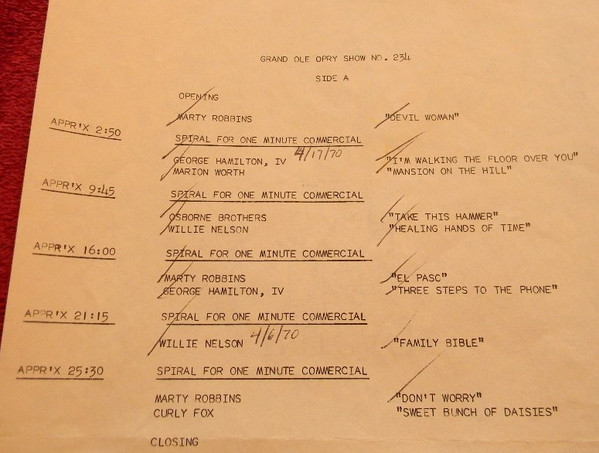 GRAND OLE OPRY SHOW NO. 234
SIDE A
OPENING
MARTY ROBBINS "DEVIL WOMAN"
APPR'X 2:50 SPIRAL FOR ONE MINUTE COMMERCIAL
4/17/70
GEORGE HAMILTON, IV "I'M WALKING THE FLOOR OVER YOU"
MARION WORTH "MANSION ON THE HILL"
APPR'X 9:45 SPIRAL FOR ONE MINUTE COMMERCIAL
OSBORNE BROTHERS "TAKE THIS HAMMER"
WILLIE NELSON "HEALING HANDS OF TIME"
APPR'X 16:00 SPIRAL FOR ONE MINUTE COMMERCIAL
MARTY ROBBINS "EL PASO"
GEORGE HAMILTON, IV "THREE STEPS TO THE PHONE"
APPR'X 21:15 SPIRAL FOR ONE MINUTE COMMERCIAL
WILLIE NELSON 4/6/70 "FAMILY BIBLE"
APPR'X 25:30 SPIRAL FOR ONE MINUTE COMMERCIAL
MARTY ROBBINS "DON'T WORRY"
CURLY FOX "SWEET BUNCH OF DAISIES"
CLOSING